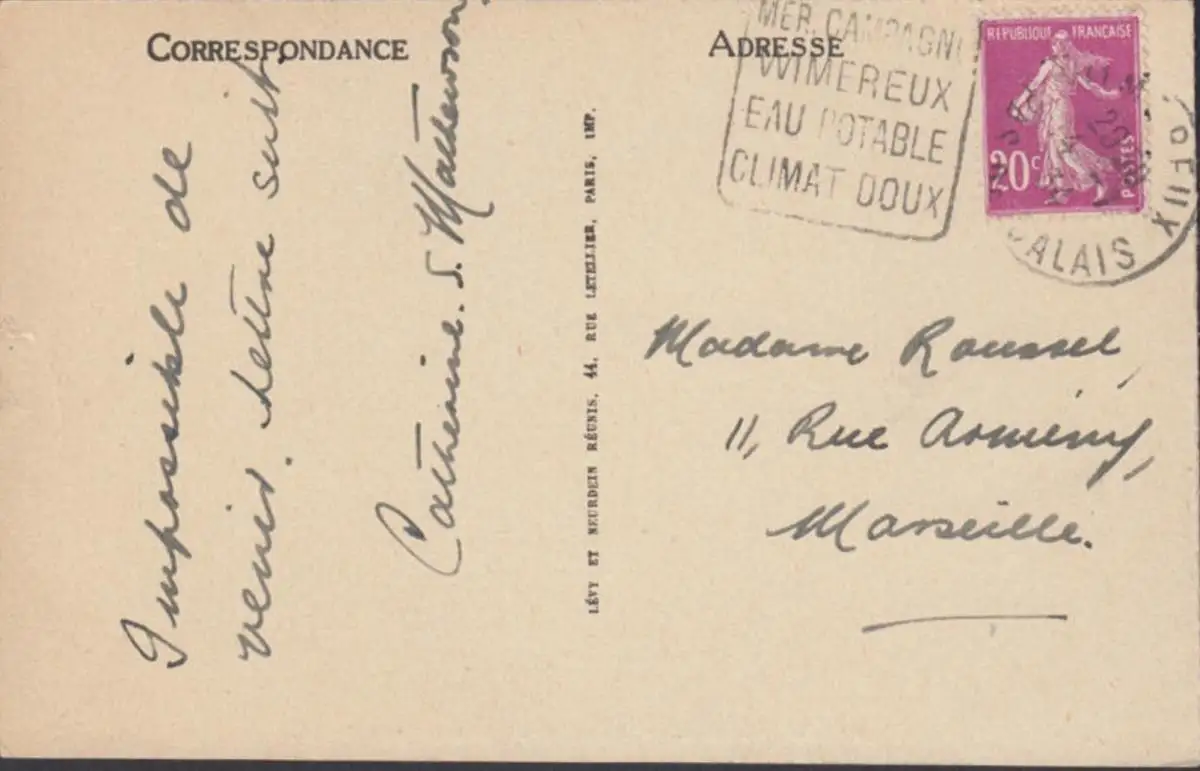 CORRESPONDANCE
ADRESSE
MER, CAMPAGNE
WIMEREUX
EAU POTABLE
CLIMAT DOUX
REPUBLIQUE FRANÇAISE
20c
POSTES
CALAIS
Impossible de
venir. Lettre suit.
Catherine. S. Mathewson
LÉVY ET NEURDEIN RÉUNIS, 44, RUE LETELLIER, PARIS, IMP.
Madame Roussel,
11, Rue Armény,
Marseille.